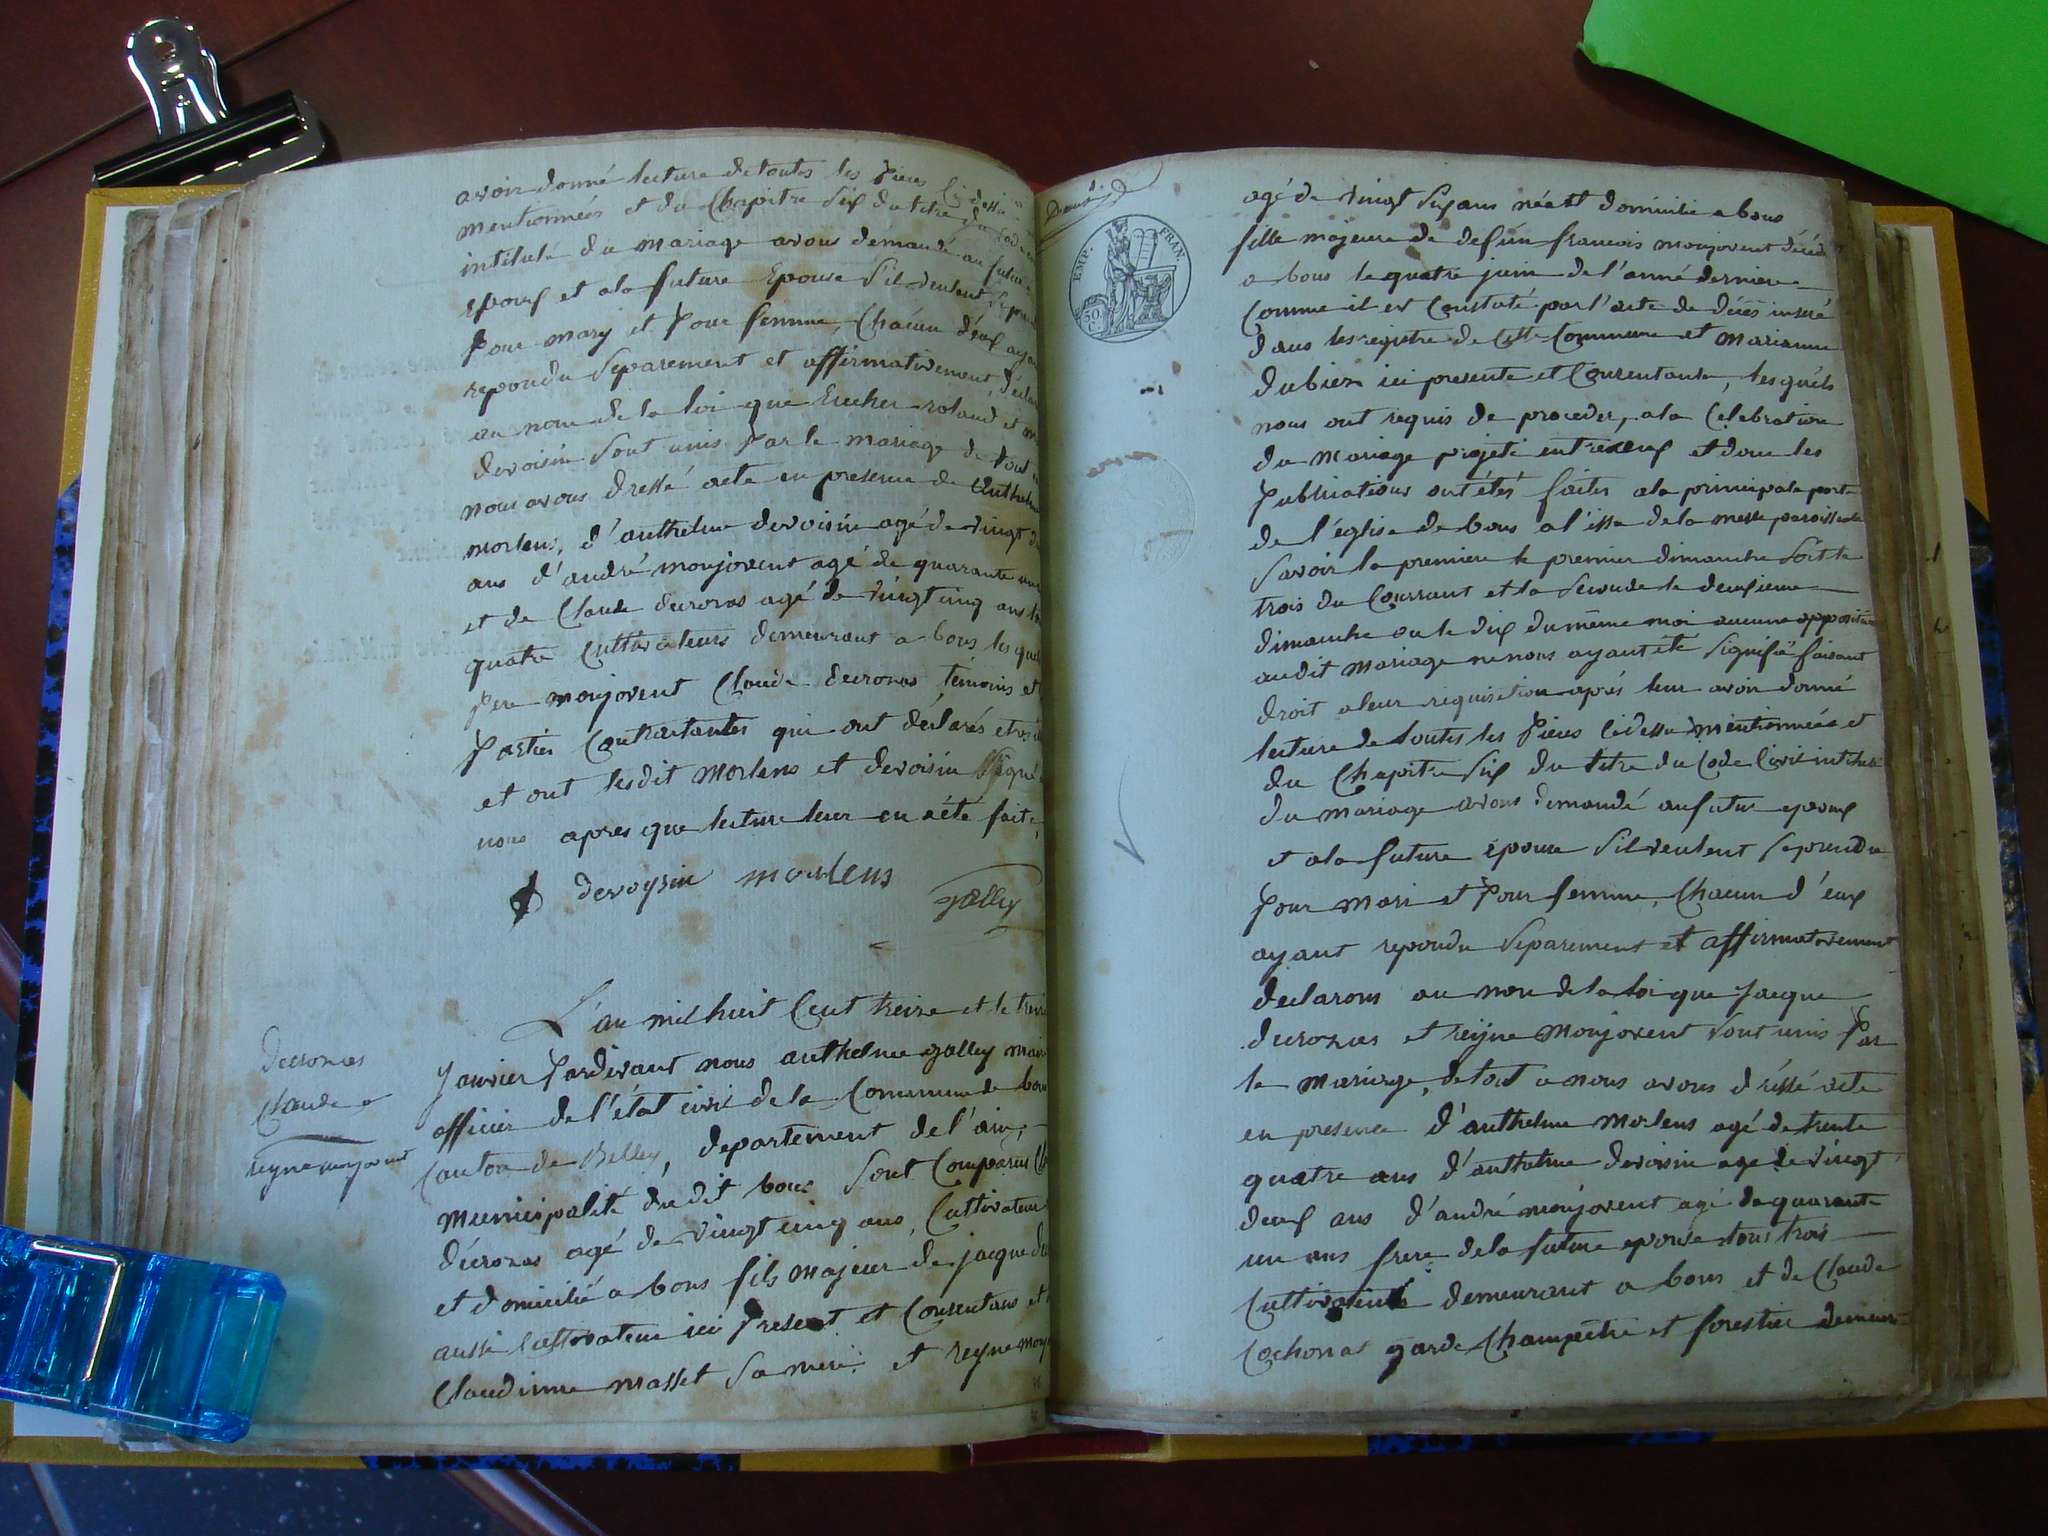 avoir donné lecture de toutes les pieces Ci dessu
mentionnées et du Chapitre Six du titre du Code
intitulé du mariage avons demandé au futur
epoux et ala future Epouse S'il veulent se prendre
pour mary et pour femme, Chacun d'eux ayant
repondu Separement et affirmativement, déclar
au nom de la loi que roland et
devoisin Sont unis par le mariage de tout
nous avons dressé acte en presence de Anthelme
morlens, d'anthelme devoisin agé de vingt
ans d'andré monjovent agé de quarante
et de Claude decronas agé de vingt cinq ans
quatre Cultivateurs demeurant a bons les quels
pere monjovent Claude decronas, témoins et
parties Contractantes qui ont déclarés
et ont lesdit Morlens et devoisin Signé
nous apres que lecture leur en a été faite,
devoysin morlens
galley
decronas
Claude
reyne monjovent
L'an mil huit Cent treize et le
janvier pardevant nous anthelme galley maire
officier de l'état civil de la Commune de bons
Canton de Belley, departement de l'ain,
municipalité dudit bons Sont Comparus
décronas agé de vingt cinq ans, Cultivateur
et domicilié a bons fils majeur de jacque
aussi Cultivateur ici present et Consentans et
Claudinne masset Sa mere et reyne monj
EMP. FRAN.
50 C.
agé de vingt Six ans née et domicilié a bons
fille majeure de defun francois monjovent décédé
a bons le quatre juin de l'anné derniere
Comme il est Constaté par l'acte de décès inseré
dans les registre de Cette Commune et marianne
dubiez ici presente et Consentante, lesquels
nous ont requis de proceder, ala Celebration
du mariage projeté entre eux et dont les
publications ont étés faites ala principale porte
de l'église de bons a l'issu de la messe paroissiale
Savoir la premiere le premier dimanche Soit le
trois du Courrant et la Seconde le deuxieme
dimanche ou le dix du même moi aucune opposition
audit mariage ne nous ayant été Signifié faisant
droit a leur requisition après leur avoir donné
lecture de toutes les pieces Cidessu mentionnées et
du Chapitre Six du titre du Code Civil intitulé
du mariage avons demandé au futur epoux
et ala future épouse S'il veulent Se prendre
pour mari et pour femme, Chacun d'eux
ayant repondu Separement et affirmativement
declarons au nom de la loi que jacque
decronas et reyne monjovent Sont unis par
le mariage, de tout a nous avons dréssé acte
en presence d'anthelme Morlens agé de trente
quatre ans d'anthelme devoisin agé de vingt
deux ans d'andré monjovent agé de quarante
un ans frere de la future epouse tous trois
Cultivateurs demeurant a bons et de Claude
Cochonat garde Champêtre et forestier demeur